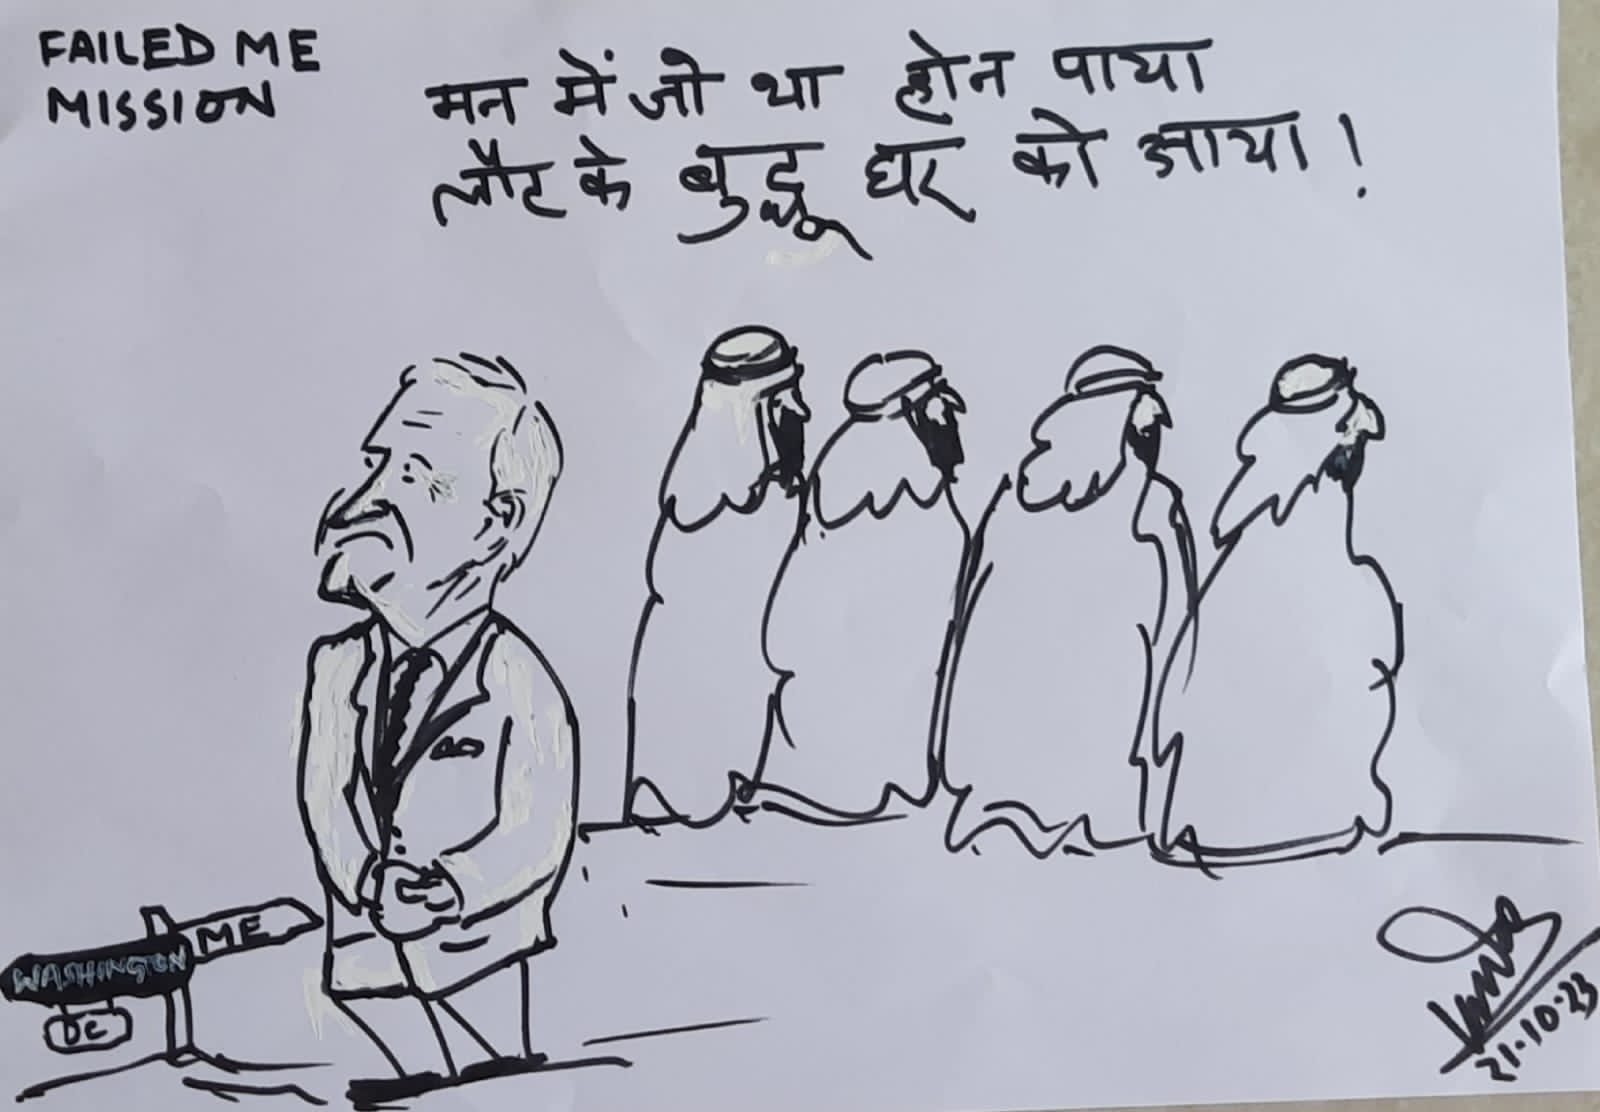 FAILED ME
MISSION
मन में जो था होन पाया
लौट के बुद्धू घर को आया!
ME
WASHINGTON
DC
21.10.23